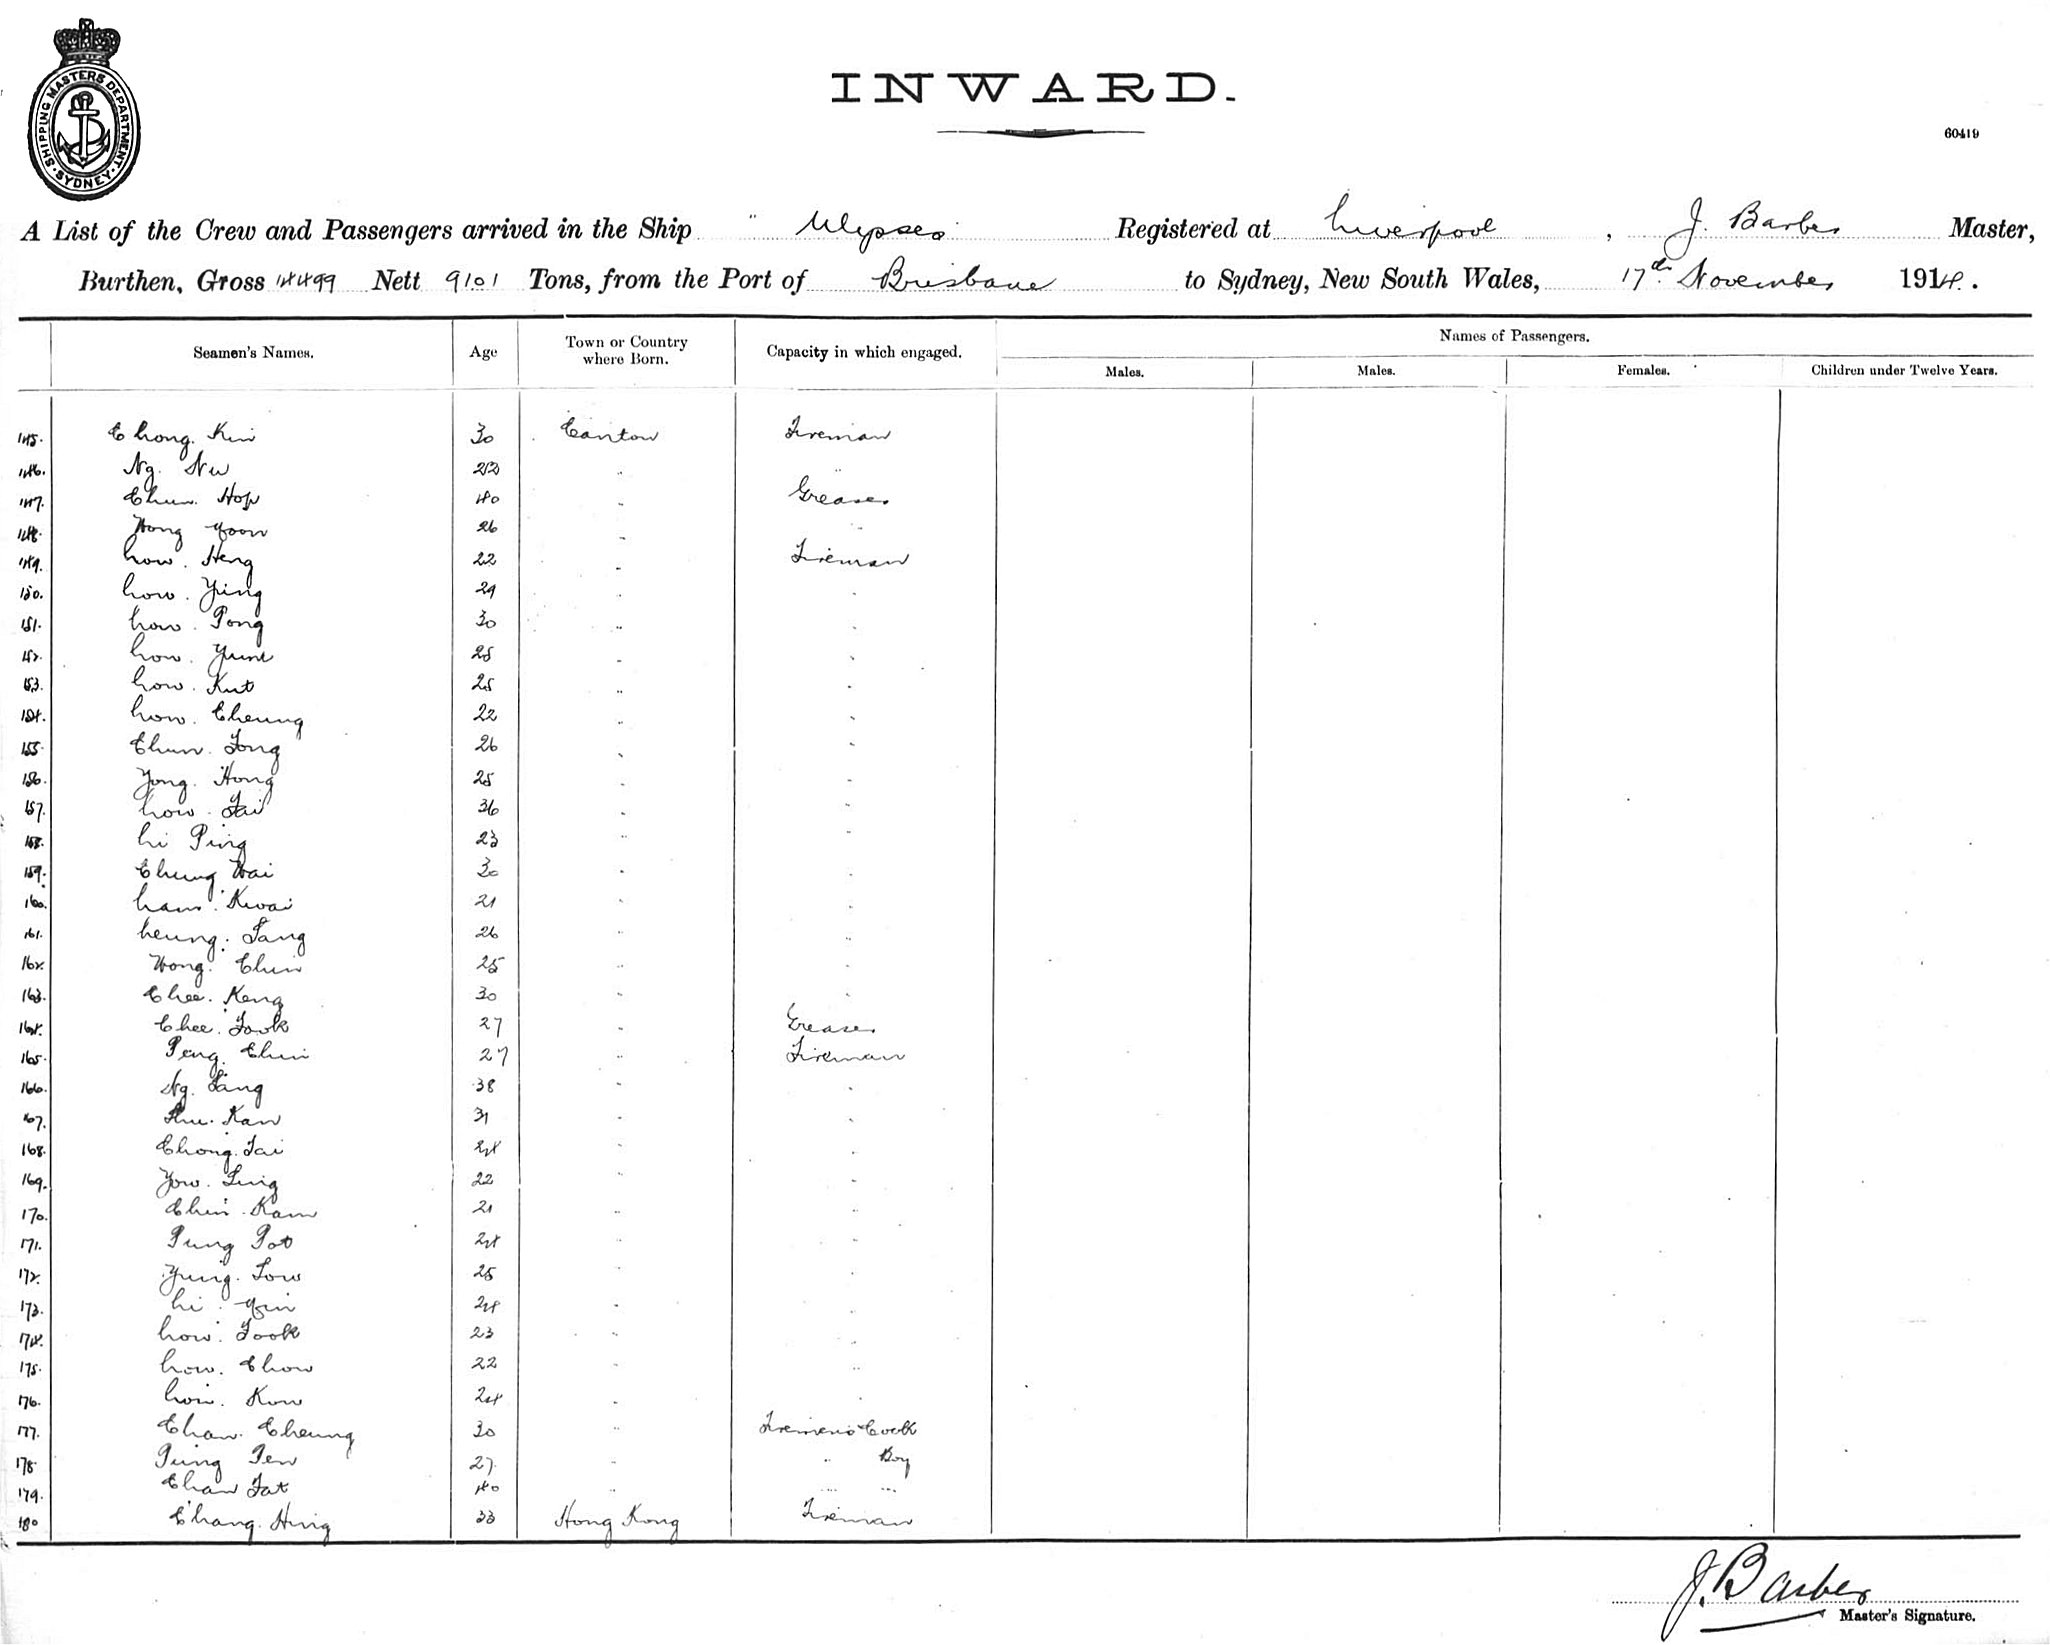 SHIPPING MASTERS DEPARTMENT
SYDNEY
INWARD.
60419
A List of the Crew and Passengers arrived in the Ship " Ulysses Registered at Liverpool, J. Barber Master,
Burthen, Gross 14499 Nett 9101 Tons, from the Port of Brisbane to Sydney, New South Wales, 17th November 1914.
Seamen's Names. Age Town or Country where Born. Capacity in which engaged. Names of Passengers.
Males. Males. Females. Children under Twelve Years.
145. Chong. Kin 30 Canton Fireman
146. Ng. Nu " "
147. Chun. Hop 40 " Greaser
148. Wong Yoon 26 " "
149. Low. Heng 22 " Fireman
150. Low. Ying 29 " "
151. Low. Pong 30 " "
152. Low. Yune 25 " "
153. Low. Kut 25 " "
154. Low. Cheung 22 " "
155. Chun. Fong 26 " "
156. Yong. Hong 25 " "
157. Low. Tai 36 " "
158. Li Ping 23 " "
159. Chung Wai 30 " "
160. Lam. Kwai 21 " "
161. Leung. Sang 26 " "
162. Wong. Chin 25 " "
163. Chee. Keng 30 " "
164. Chee. Fook 27 " Greaser
165. Peng. Chin 27 " Fireman
166. Ng. Sang 38 " "
167. Kan 31 " "
168. Chong. Tai 24 " "
169. Yow. Sing 22 " "
170. Chin. Kam 21 " "
171. Pung Pot 24 " "
172. Yung. Sow 25 " "
173. Li. Yin 24 " "
174. Low. Fook 23 " "
175. Low. Chow 22 " "
176. Kow 24 " "
177. Chan. Cheung 30 " Firemen's Cook
178. Pung Pen 27 " " Boy
179. Chan Fat 40 " " "
180 Chang. Hing 33 Hong Kong Fireman
J. Barber
Master's Signature.